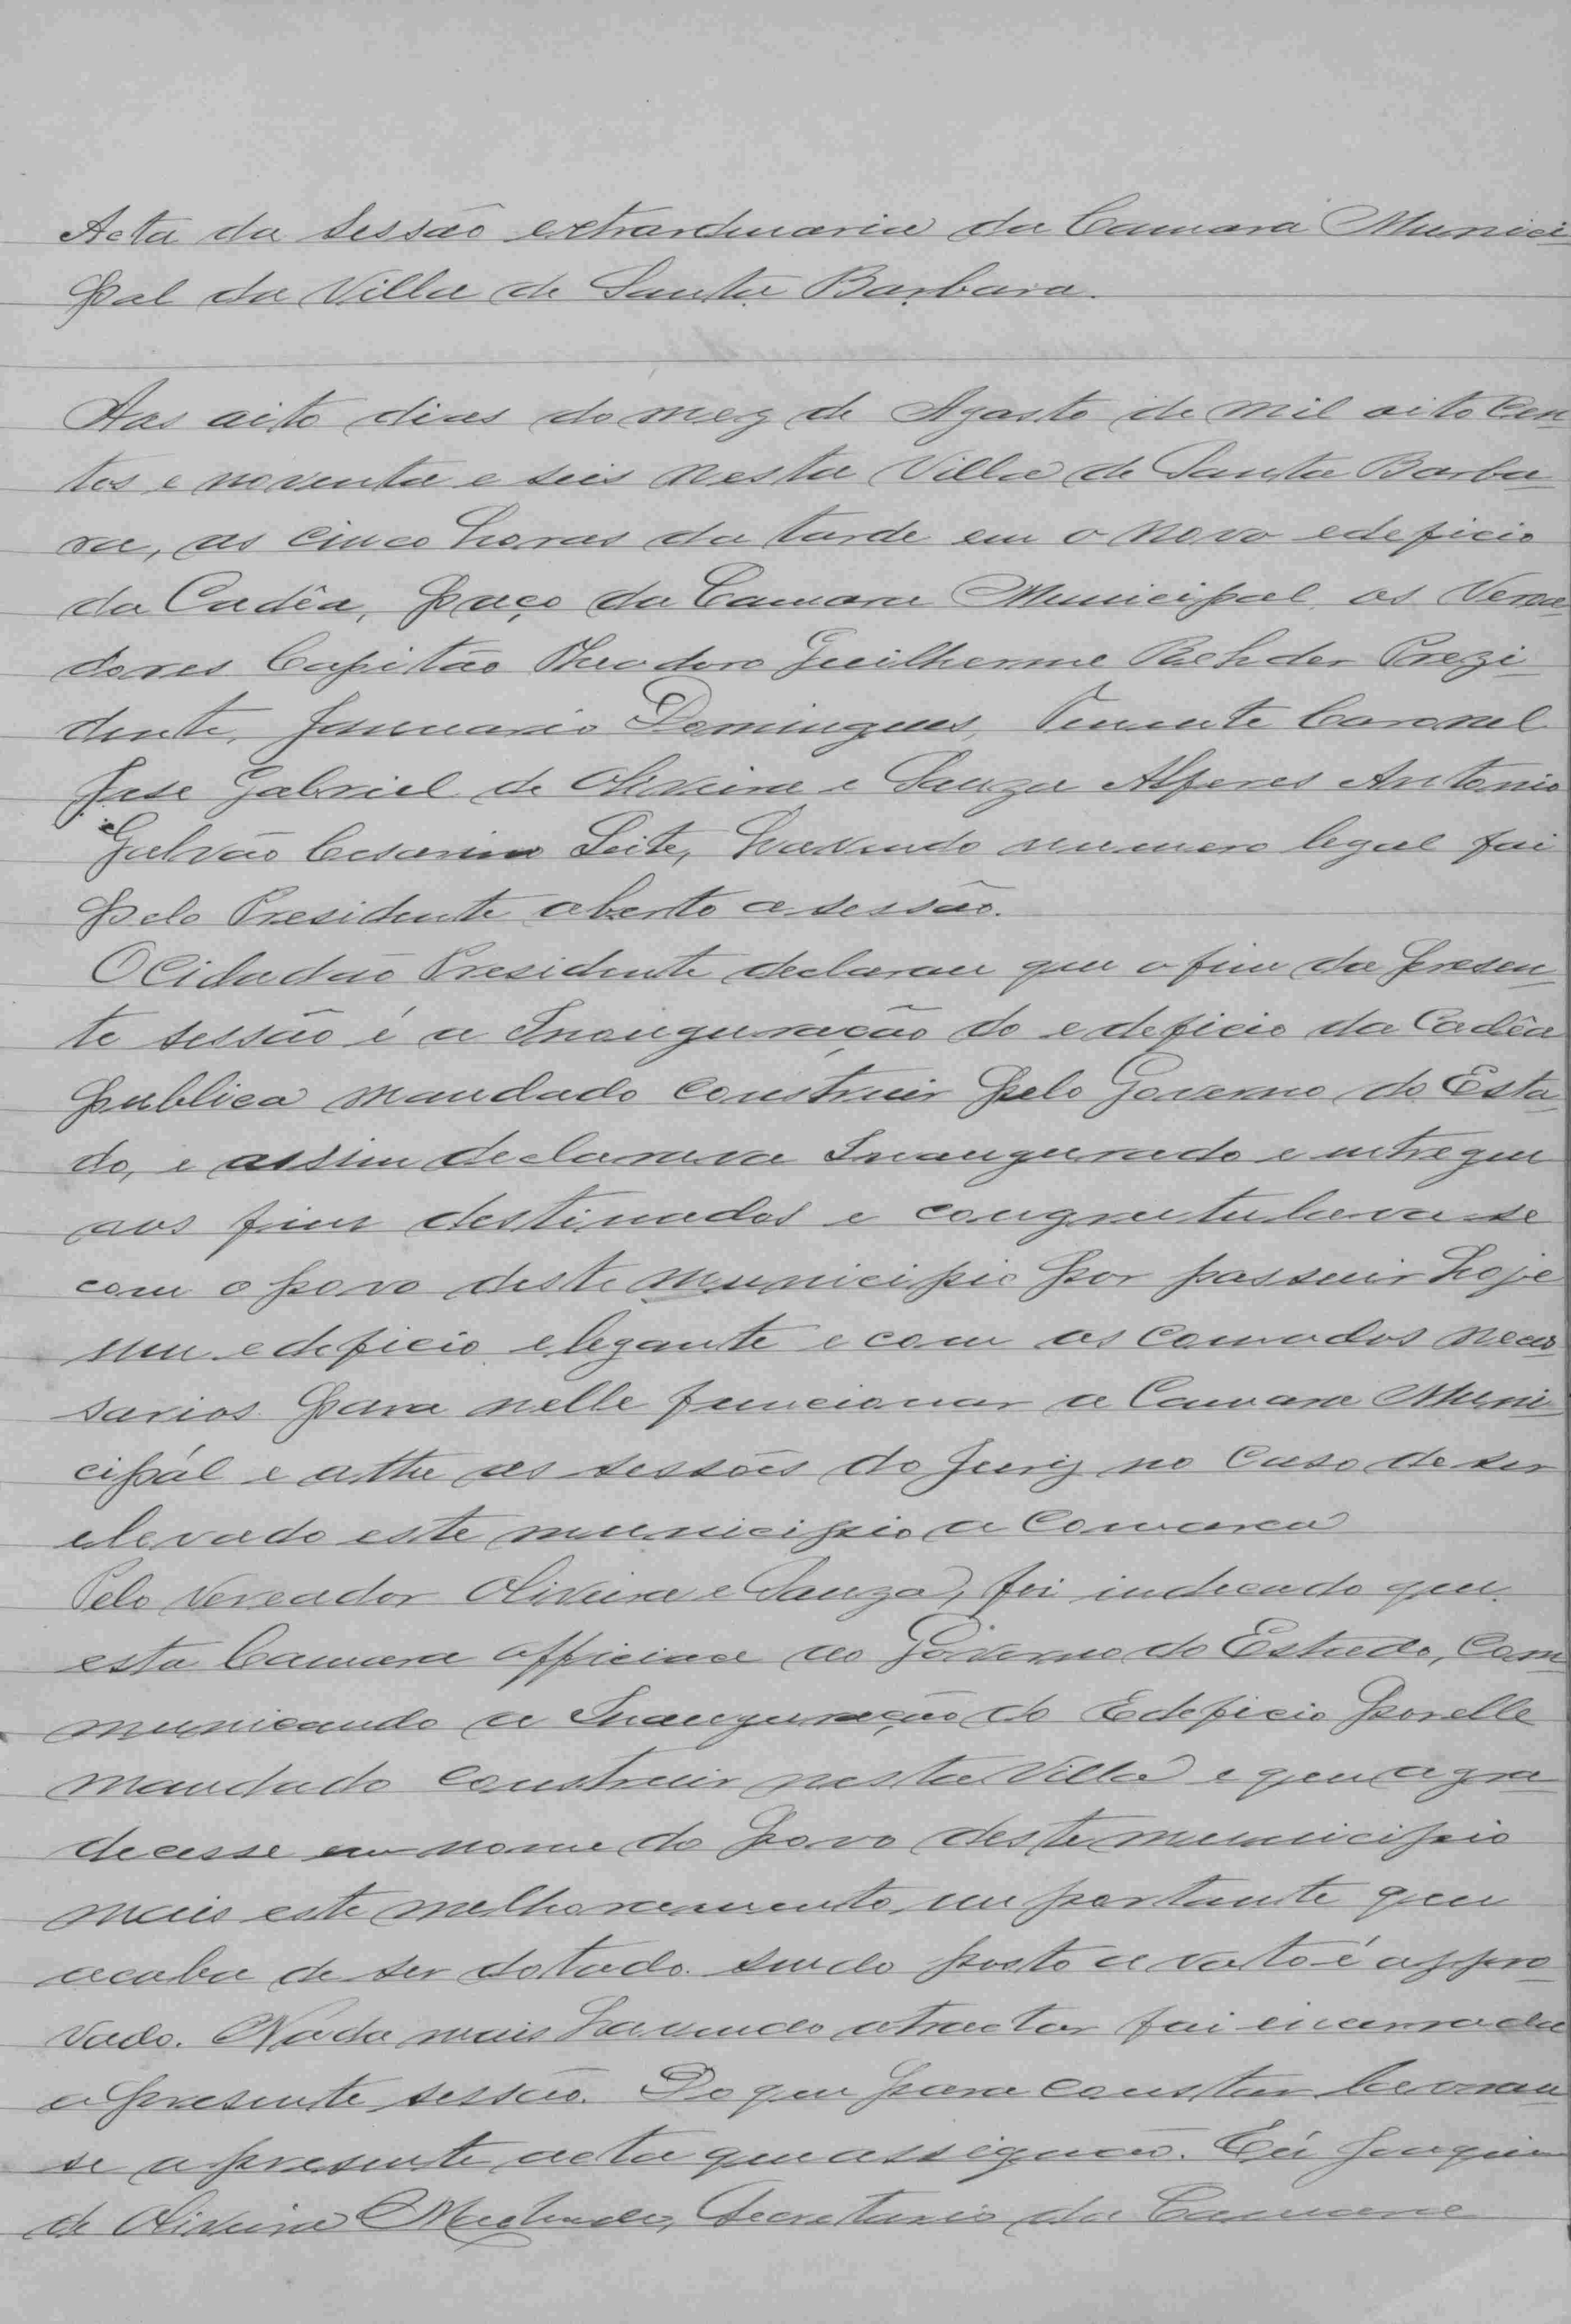 Acta da Sessão extrardinaria da Camara Munici
pal da Villa de Santa Barbara.
Aos oito dias do mez de Agosto de mil oito cen
tos e noventa e seis nesta Villa de Santa Barba
ra, as cinco horas da tarde em o novo edeficio
da Cadêa, paço da Camara Municipal, os Verea
dores Capitão Theodoro Guilherme Prezi
dente, Januario Domingues, Tenente Coronel
Jose Gabriel de Oliveira e Souza Alferes Antonio
Galvão Cesarino Leite, havendo numero legal foi
pelo Presidente aberto a sessão.
O Cidadão Presidente declarou que o fim da presen
te sessão é a Inauguração do edeficio da Cadêa
publica mandado construir pelo Governo do Esta
do, e assim declarava Inaugurado e entregue
aos fins destinados e congratulava-se
com o povo deste municipio por possuir hoje
um edeficio elegante e com os comodos neces
sarios para nelle funcionar a Camara Muni
cipál e athe as sessões do Jury no Caso de ser
elevado este municipio a Comarca
Pelo Vereador Oliveira e Souza, foi indicado que
esta Camara officiace ao Governo do Estado, Com
municando a Inauguração do Edeficio por elle
mandado construir nesta Villa e que agra
decesse em nome do povo deste municipio
mais este melhoramento, importante que
acaba de ser dotado. sendo posto a voto é appro
vado. Nada mais havendo atractar foi encerrada
a presente sessão. Do que para constar lavrou
se a presente acta que assignão. Eu Joaquim
de Oliveira Secretario da Camara